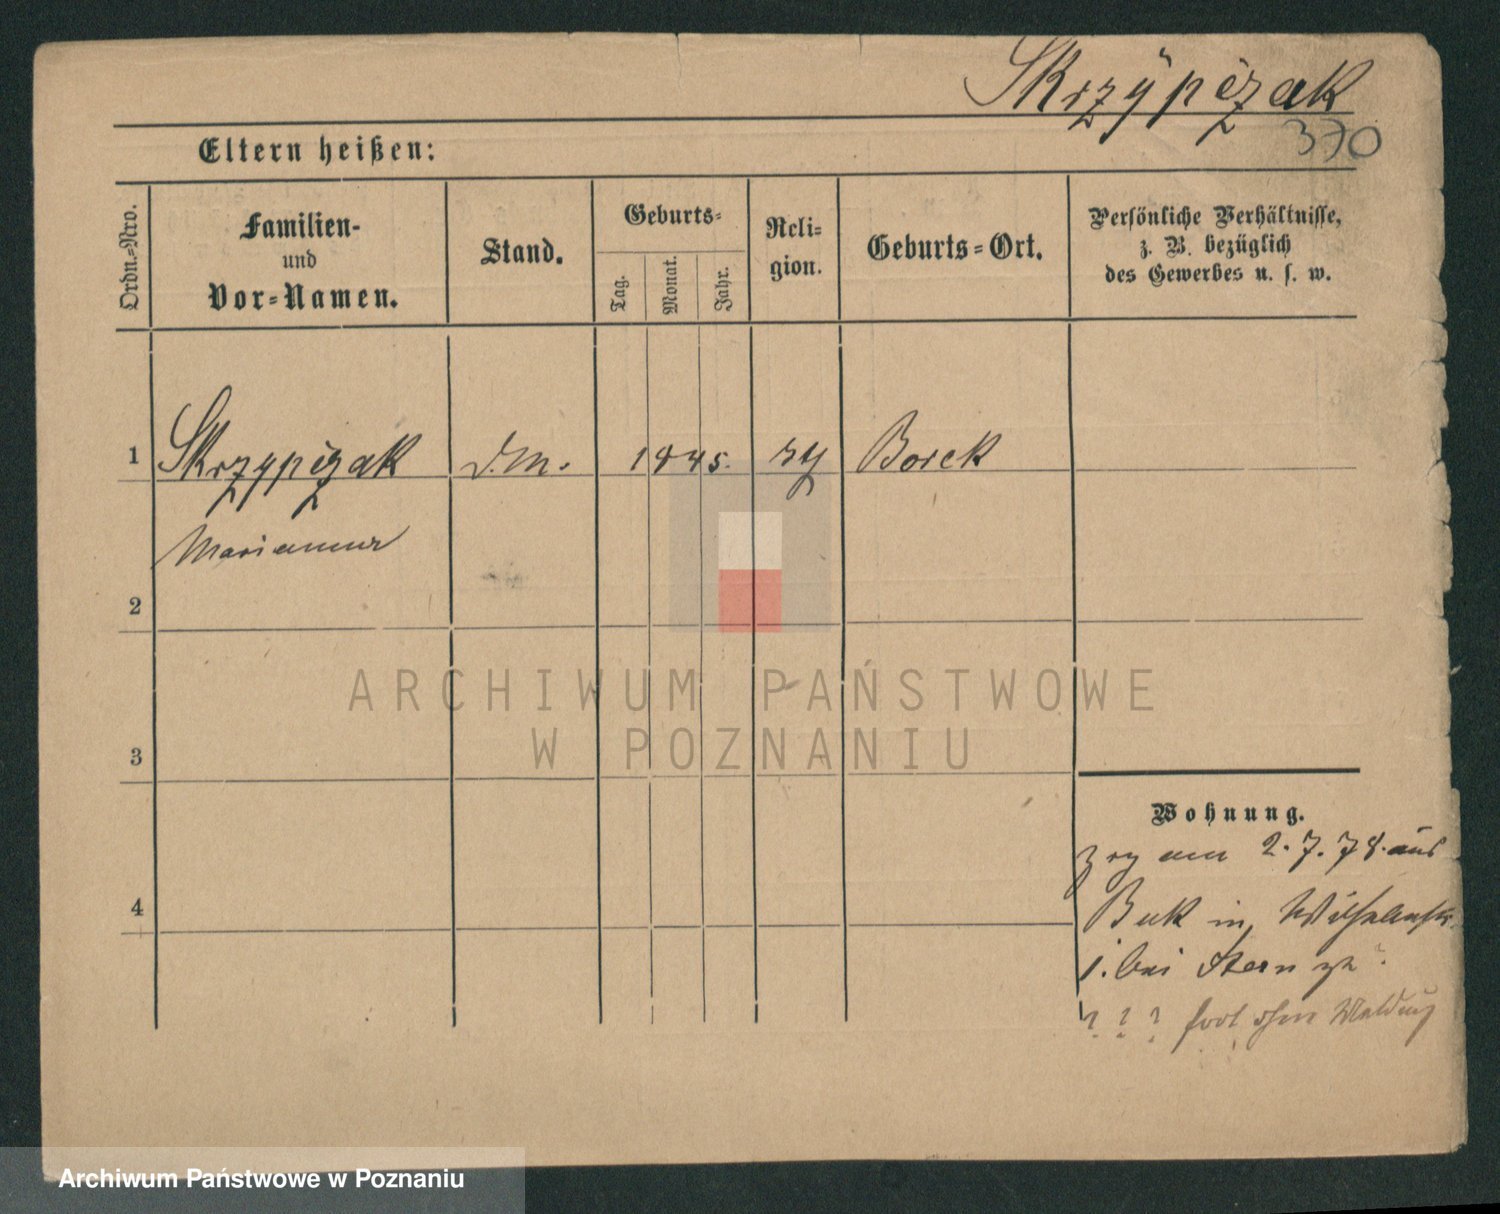 Skrzÿpczak
370
Eltern heißen:
Ordn.-Nro.
Familien-
und
Vor-Namen.
Stand.
Geburts-
Tag.
Monat.
Jahr.
Reli-
gion.
Geburts-Ort.
Persönliche Verhältnisse,
z. B. bezüglich
des Gewerbes u. s. w.
1 Skrzypczak D.M. 1845. Borek
Marianna
2
3
4
Wohnung.
am 2.7.78. aus
Buk in Wilhelmstr.
1. bei Stern
? ? ? fort ohne Meldung
ARCHIWUM PAŃSTWOWE
W POZNANIU
Archiwum Państwowe w Poznaniu